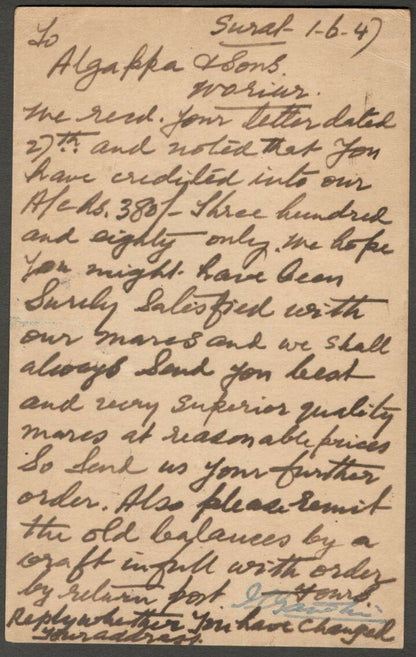 Surat 1-6-47
To
Algappa & Sons
Wariur.
We recd. your letter dated
27th and noted that you
have credited into our
A/c Rs. 380/- Three hundred
and eighty only. We hope
you might have been
Surely Satesfied with
our mares and we shall
always Send you best
and very superior quality
mares at reasonable prices
So Send us your further
order. Also please remit
the old balances by a
craft in full with order
by return post Yours
Reply whether you have changed
your address.